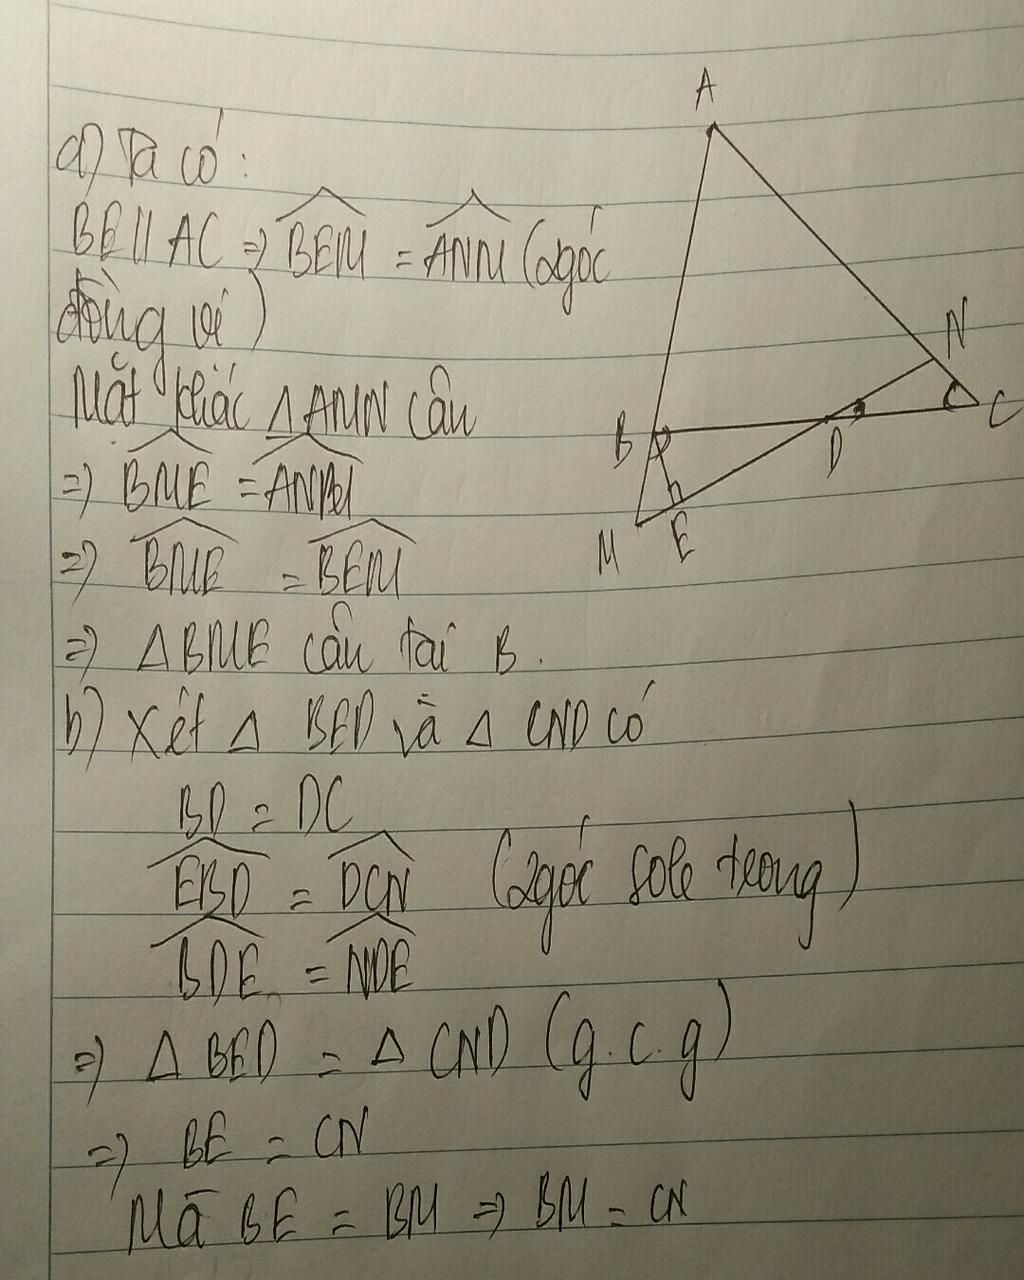 a) Ta có:
BE // AC => BEM = ANM (2 góc
đồng vị)
Mặt khác △AMN cân
=> BME = ANM
=> BME = BEM
=> △BME cân tại B.
b) Xét △ BED và △ CND có
BD = DC
EBD = DCN (2 góc sole trong)
BDE = NDE
=> △ BED = △ CND (g.c.g)
=> BE = CN
Mà BE = BM => BM = CN
A
N
B
D
C
M
E